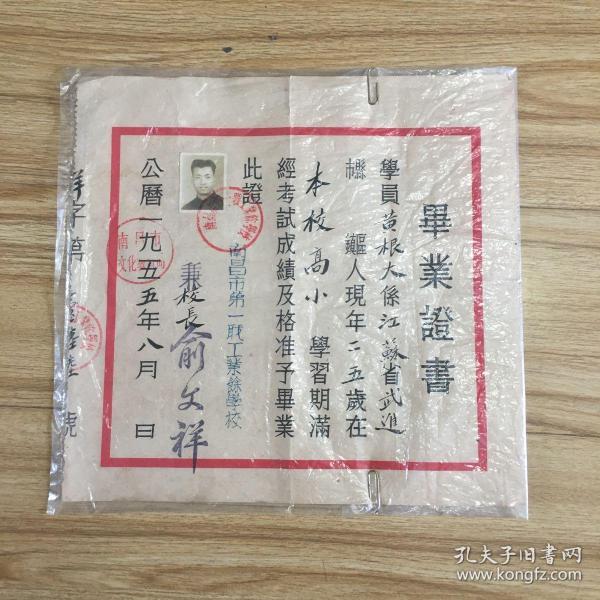 畢業證書
學員黃根大係江蘇省武進
縣市 區鄉人現年二五歲在
本校高小 學習期滿
經考試成績及格准予畢業
此證
南昌市第一職工業餘學校
兼校長俞文祥
公曆一九五五年八月 日
字第 號
南昌市
文化
孔夫子旧书网
www.kongfz.com